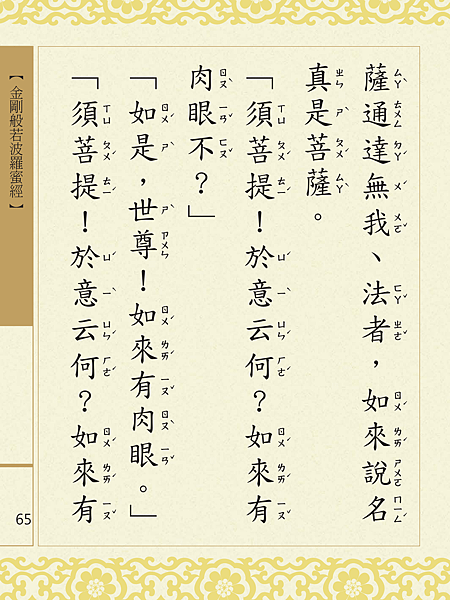 薩通達無我、法者，如來說名
真是菩薩。
「須菩提！於意云何？如來有
肉眼不？」
「如是，世尊！如來有肉眼。」
「須菩提！於意云何？如來有
【金剛般若波羅蜜經】
65